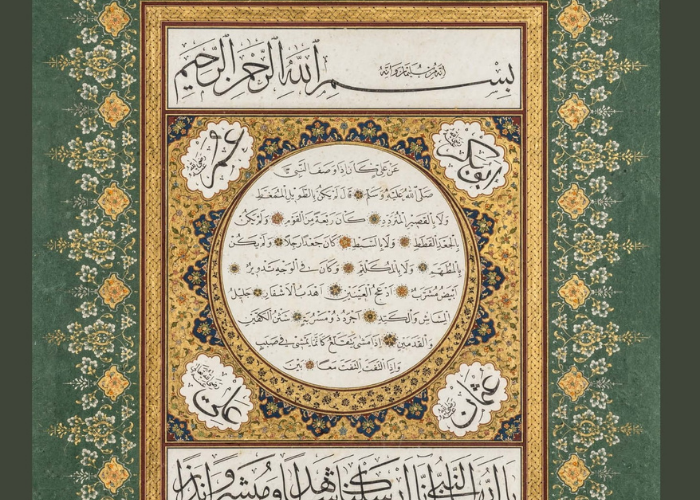 انه من سليمن وانه
بِسْمِ اللهِ الرَّحْمٰنِ الرَّحِيمِ
ابو بكر رضي الله عنه
عمر رضي الله عنه
عن علي كان اذا وصف النبي
صلى الله عليه وسلم قال لم يكن بالطويل الممغط
ولا بالقصير المتردد كان ربعة من القوم ولم يكن
بالجعد القطط ولا بالسبط كان جعدا رجلا ولم يكن
بالمطهم ولا بالمكلثم وكان في الوجه تدوير
ابيض مشرب ادعج العينين اهدب الاشفار جليل
المشاش والكتد اجرد ذو مسربة شثن الكفين
والقدمين اذا مشى يتقلع كانما يمشي في صبب
واذا التفت التفت معا بين
عثمان رضي الله عنه
علي رضي الله تعالى عنه
يا ايها النبي انا ارسلناك شاهدا ومبشرا ونذيرا